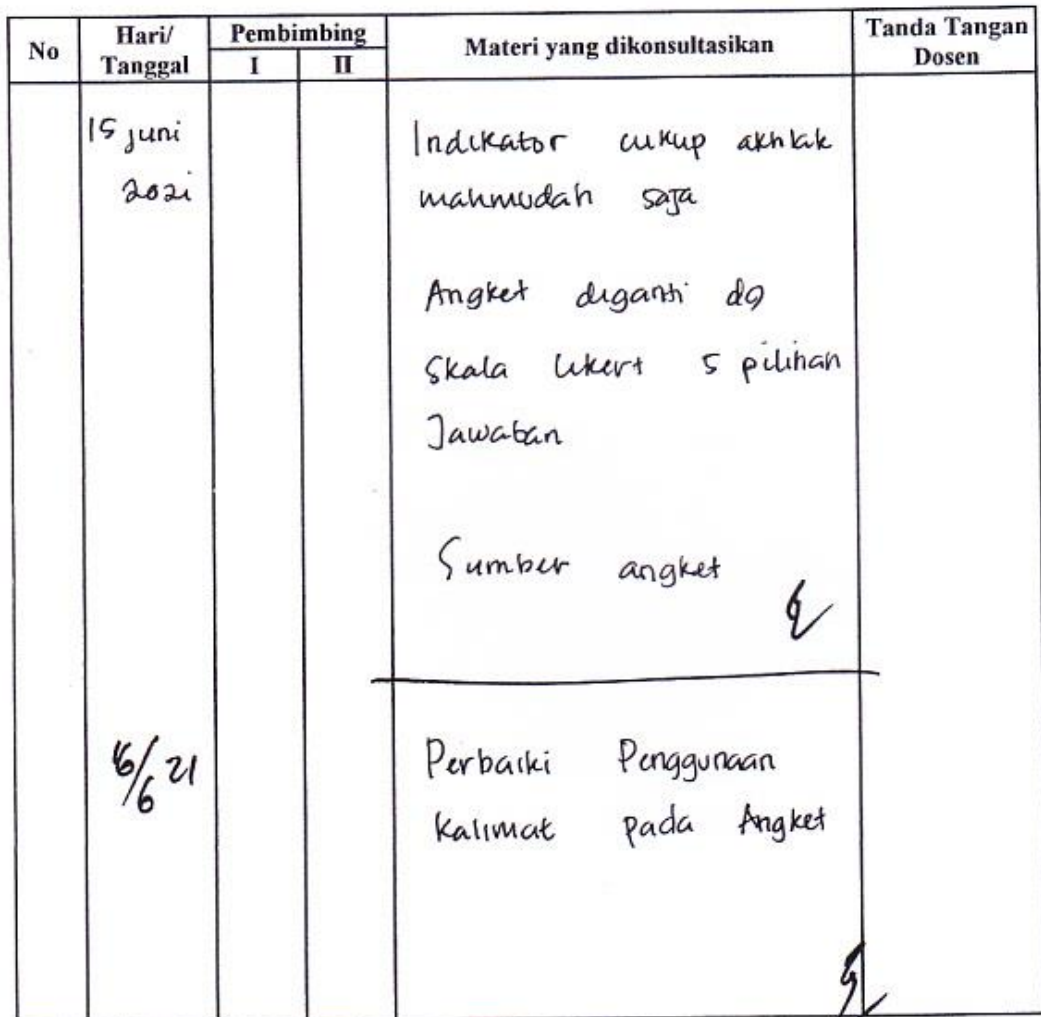 No
Hari/
Tanggal
Pembimbing
I
II
Materi yang dikonsultasikan
Tanda Tangan
Dosen
15 juni
2021
Indikator cukup akhlak
mahmudah saja
Angket diganti dg
Skala likert 5 pilihan
Jawaban
Sumber angket
/6 21
Perbaiki Penggunaan
Kalimat pada Angket